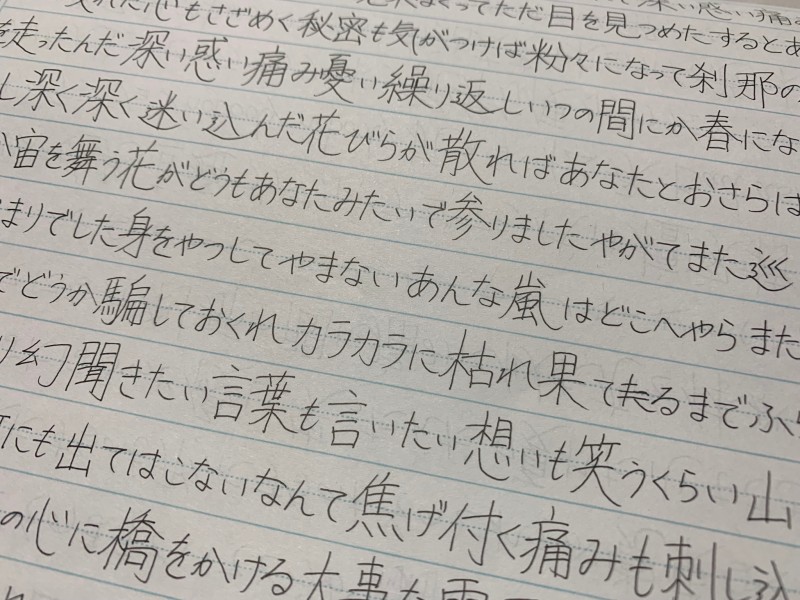 心もさざめく秘密も気がつけば粉々になって刹那の
を走ったんだ深い惑い痛み憂い繰り返しいつの間にか春にな
し深く深く迷い込んだ花びらが散ればあなたとおさらば
宙を舞う花がどうもあなたみたいで参りましたやがてまた巡
まりでした身をやつしてやまないあんな嵐はどこへやらまた
でどうか騙しておくれカラカラに枯れ果て るまでふ
り幻聞きたい言葉も言いたい想いも笑うくらい山
にも出てはこないなんて焦げ付く痛みも刺し込
の心に橋をかける大事な